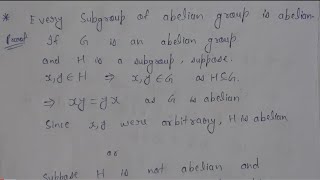 * Every Subgroup of abelian group is abelian
Proof If G is an abelian group
and H is a subgroup, suppose.
x,y ∈ H ⇒ x,y ∈ G as H⊆G.
⇒ xy = yx as G is abelian
Since x,y were arbitrary, H is abelian
or
Suppose H is not abelian and